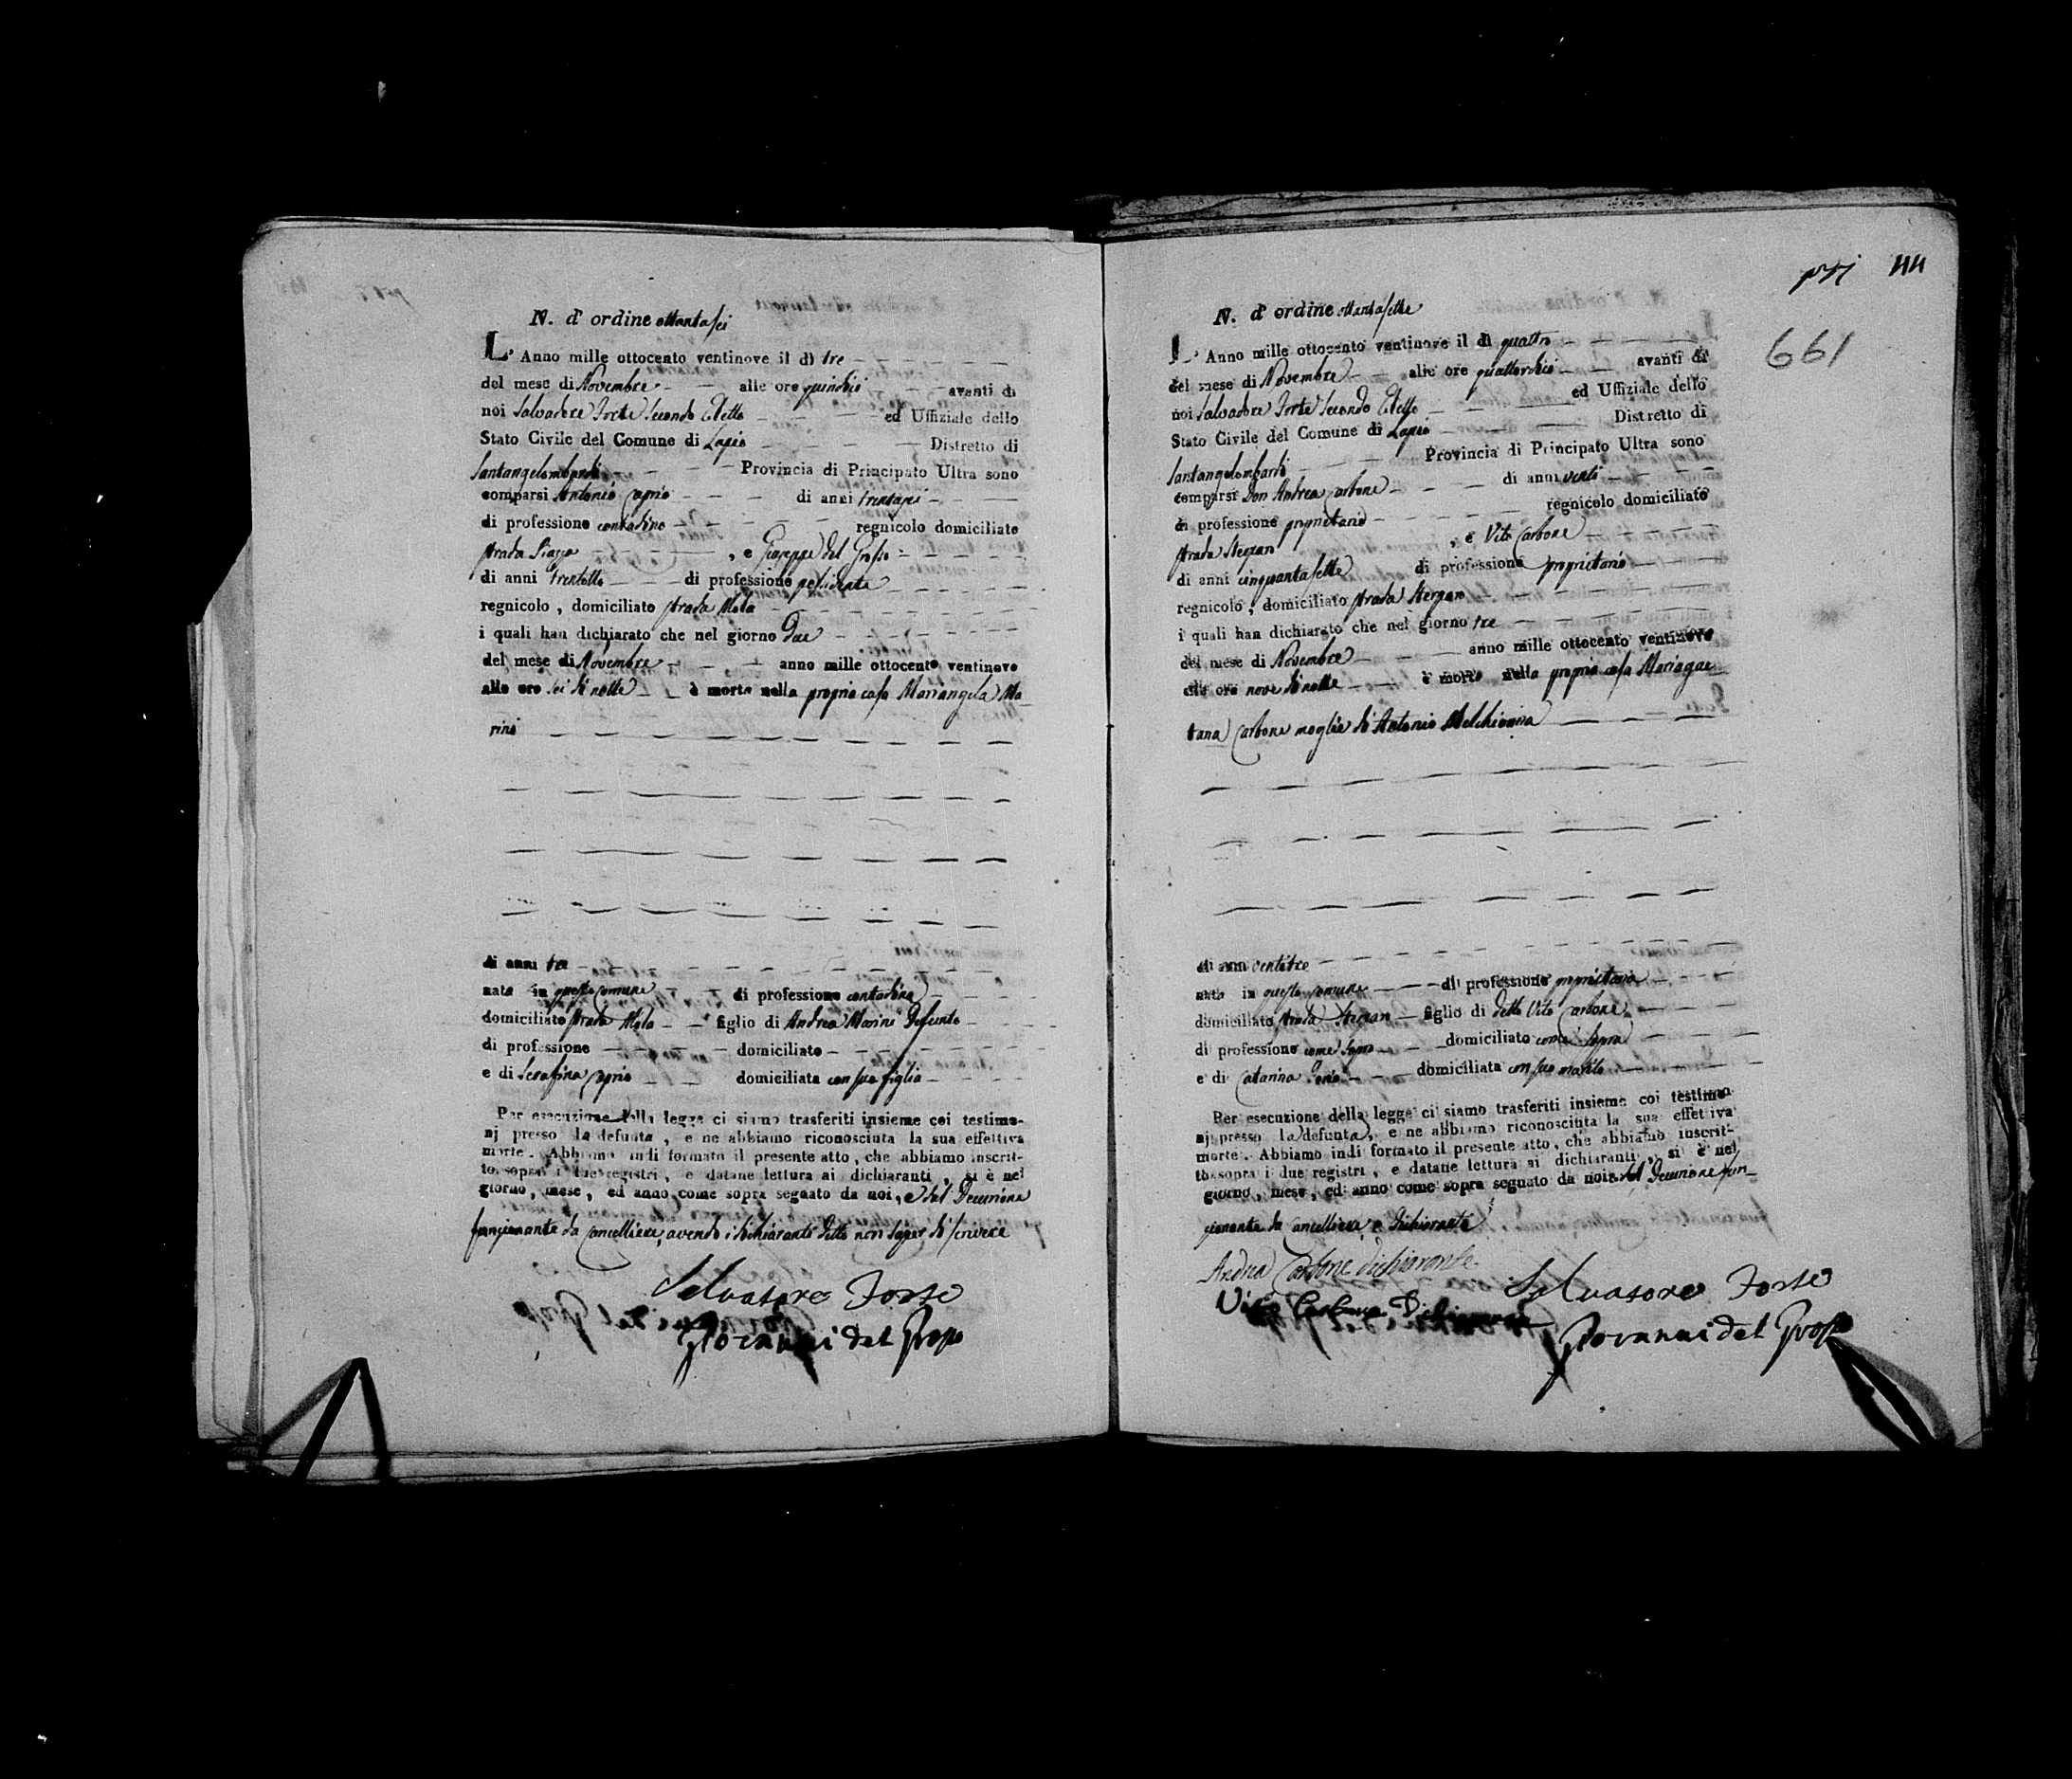 N. d' ordine ottantasei
L' Anno mille ottocento ventinove il dì tre
del mese di Novembre alle ore quindici avanti di
noi Salvadore Forte Secondo Eletto ed Uffiziale dello
Stato Civile del Comune di Lapio Distretto di
Santangelombardi Provincia di Principato Ultra sono
comparsi Antonio Caprio di anni trentasei
di professione contadino regnicolo domiciliato
strada Piazza , e Giuseppe del Grosso
di anni trentotto di professione
regnicolo , domiciliato strada Mela
i quali han dichiarato che nel giorno Due
del mese di Novembre anno mille ottocento ventinove
alle ore sei di notte è morta nella propria casa Mariangela Ma
rini
di anni tre
nata in questo Comune di professione contadina
domiciliato strada Mela figlio di Andrea Marini Defunto
di professione domiciliato
e di Serafina Caprio domiciliata con sua figlia
Per esecuzione della legge ci siamo trasferiti insieme coi testimo-
nj presso la defunta , e ne abbiamo riconosciuta la sua effettiva
morte . Abbiamo indi formato il presente atto , che abbiamo inscrit-
to sopra i due registri , e datane lettura ai dichiaranti , si è nel
giorno , mese , ed anno come sopra segnato da noi, e dal Decurione
funzionante da Cancelliere, avendo i dichiaranti detto non saper di scrivere
Salvatore Forte
Giovanni del Grosso
44
661
N. d' ordine ottantasette
L' Anno mille ottocento ventinove il dì quattro
del mese di Novembre alle ore quattordici avanti di
noi Salvadore Forte Secondo Eletto ed Uffiziale dello
Stato Civile del Comune di Lapio Distretto di
Santangelombardi Provincia di Principato Ultra sono
comparsi Don Andrea Carbone di anni venti
di professione proprietario regnicolo domiciliato
strada , e Vito Carbone
di anni cinquantasette di professione proprietario
regnicolo , domiciliato strada
i quali han dichiarato che nel giorno tre
del mese di Novembre anno mille ottocento ventinove
alle ore nove di notte è morta nella propria casa Mariagae
tana Carbone moglie di Antonio Melchionna
di anni ventitre
nata in questo Comune di professione proprietaria
domiciliato strada figlio di detto Vito Carbone
di professione come sopra domiciliato come sopra
e di Catarina domiciliata con suo marito
Per esecuzione della legge ci siamo trasferiti insieme coi testimo-
nj presso la defunta , e ne abbiamo riconosciuta la sua effettiva
morte . Abbiamo indi formato il presente atto , che abbiamo inscrit-
to sopra i due registri , e datane lettura ai dichiaranti , si è nel
giorno , mese , ed anno come sopra segnato da noi dal Decurione fun-
zionante da Cancelliere, e dichiarante
Andrea Carbone dichiarante
Salvatore Forte
Vito Carbone Dichiarante
Giovanni del Grosso